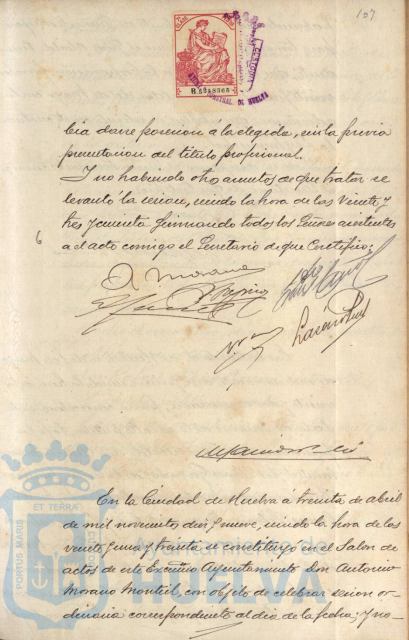 107
B.5348065
ARCHIVO MUNICIPAL DE HUELVA
bia darse posesion á la elegida, sin la previa
presentacion del titulo profesional.
Y no habiendo otros asuntos de que tratar se
levantó la sesion, siendo la hora de las veinte y
tres y cuenta firmando todos los Señores asistentes
al acto comigo el Secretario de que Certifico:
6
A. Morano
Lazaro
En la Ciudad de Huelva á treinta de abril
de mil novecientos diez y nueve, siendo la hora de las
veinte y una y treinta se constituyó en el Salon de
actos de este Excmo Ayuntamiento Don Antonio
Morano Montiel, con objeto de celebrar sesion or-
dinaria correspondiente al dia de la fecha, y no-
PORTUS MARIS
ET TERRAE
Ayuntamiento de
HUELVA